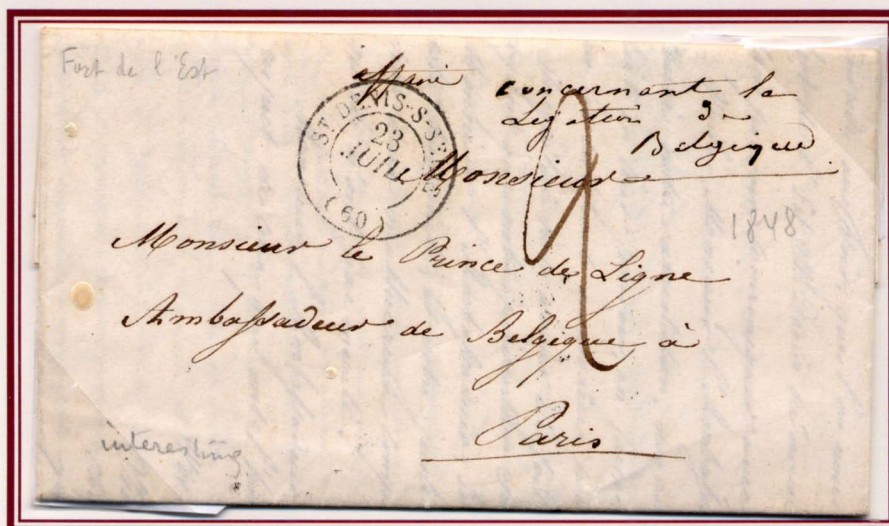 Fort de l'Est
affaire concernant la
Légation de
Belgique
ST DENIS-S-SEINE
23
JUIL
(60)
2
Monsieur
1848
Monsieur le Prince de Ligne
Ambassadeur de Belgique à
Paris
interesting